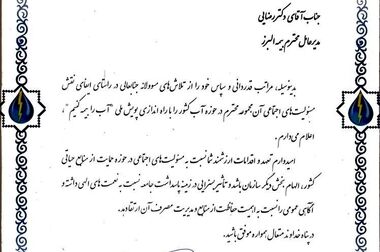 جناب آقای دکتر رضایی
مدیرعامل محترم بیمه البرز
بدینوسیله، مراتب قدردانی و سپاس خود را از تلاش‌های مسوولانه جنابعالی در راستای ایفای نقش
مسئولیت‌های اجتماعی آن مجموعه محترم در حوزه آب کشور را با راه اندازی پویش ملی "آب را بیمه کنیم"،
اعلام می‌دارم.
امید دارم تعهد و اقدامات ارزشمند شما نسبت به مسئولیت‌های اجتماعی در حوزه حمایت از منابع حیاتی
کشور، الهام بخش دیگر سازمان‌ها باشد و تأثیر بسزایی در زمینه پاسداشت جامعه نسبت به نعمت‌های الهی داشته و
آگاهی عمومی را نسبت به اهمیت حفاظت از منابع و مدیریت مصرف آن ارتقاء دهد.
در پناه خداوند متعال همواره موفق باشید.